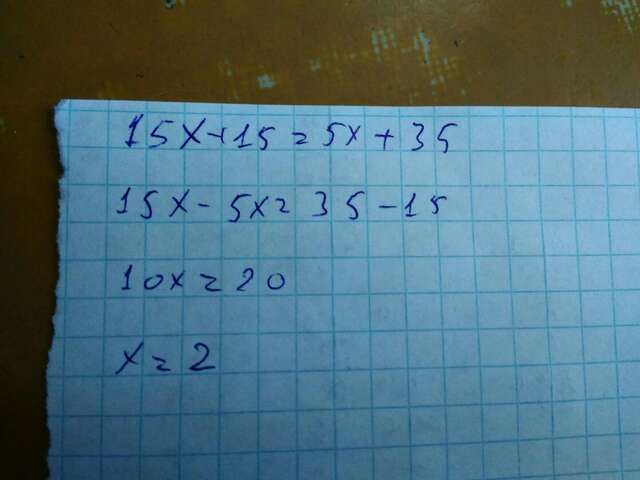 15x+15=5x+35
15x-5x=35-15
10x=20
x=2